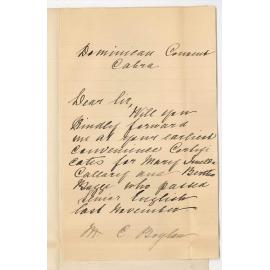 Dominican Convent
Cabra
Dear Sir,
Will you
Kindly forward
me at your earliest
convenience Certifi
cates for Mary
and Bertha
who passed
Senior English
last November
M. C. Boylan